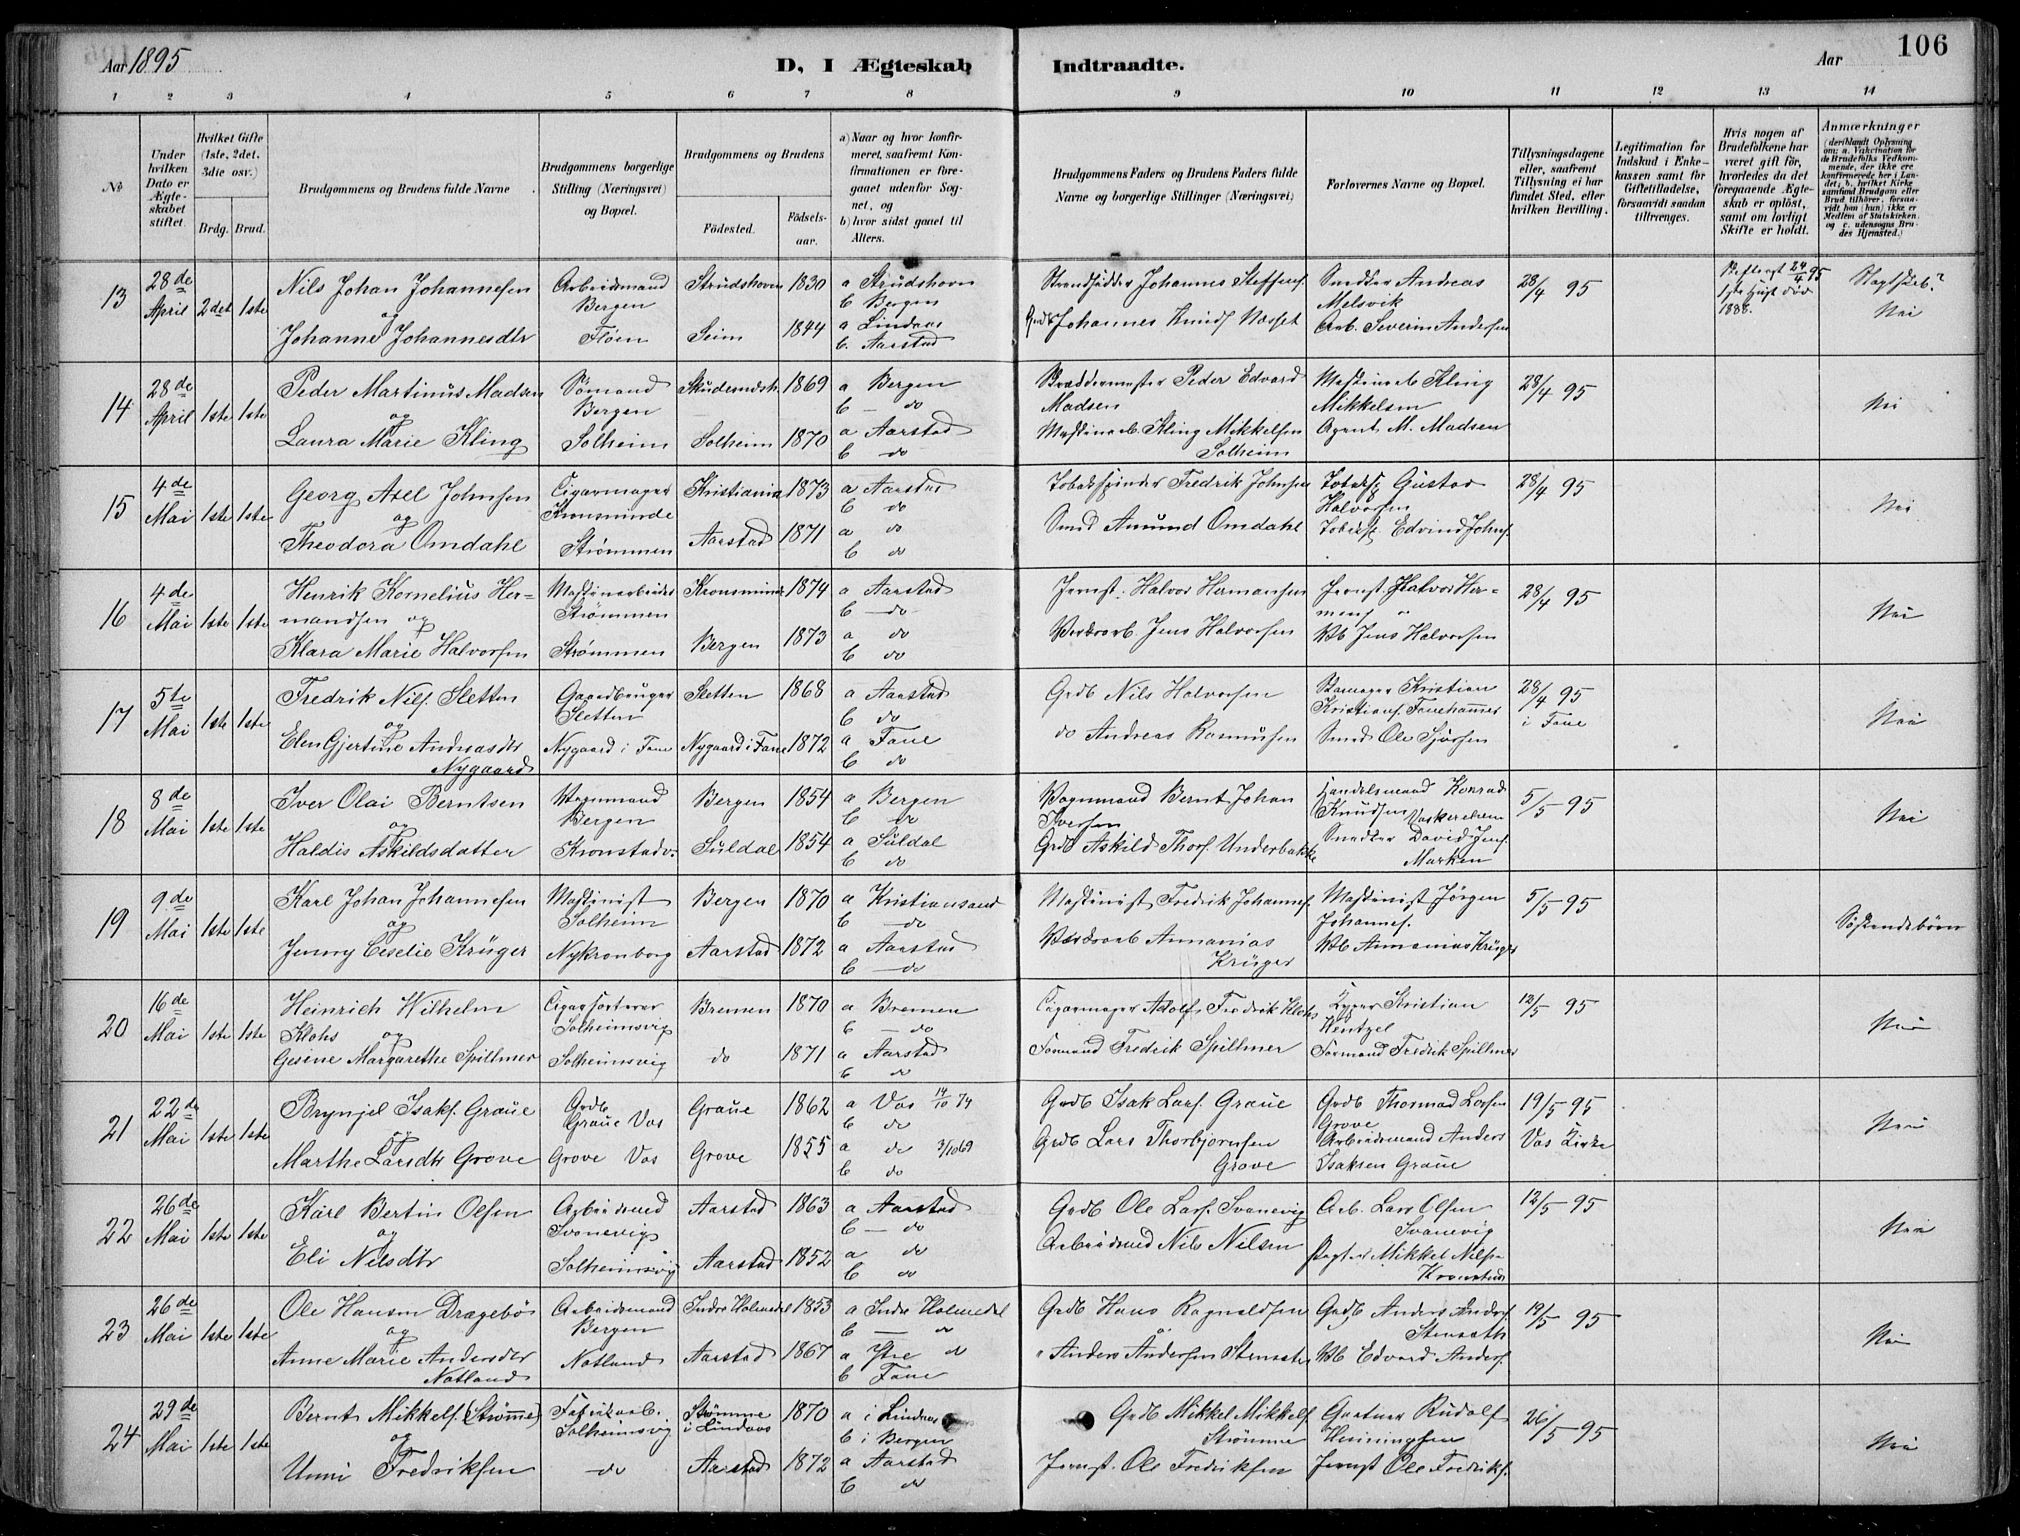 Aar 1895
D, I Ægteskab
Indtraadte.
Aar
106
1 2 3 4 5 6 7 8 9 10 11 12 13 14
№
Under hvilken Dato er Ægteskabet stiftet.
Hvilket Gifte (1ste, 2det, 3die osv.)
Brdg. Brud.
Brudgommens og Brudens fulde Navne
Brudgommens borgerlige Stilling (Næringsvei) og Bopæl.
Brudgommens og Brudens
Födested.
Födselsaar.
a) Naar og hvor konfirmeret, saafremt Konfirmationen er foregaaet udenfor Sognet, og
b) hvor sidst gaaet til Alters.
Brudgommens Faders og Brudens Faders fulde Navne og borgerlige Stillinger (Næringsvei)
Forlovernes Navne og Bopæl.
Tillysningsdagene eller, saafremt Tillysning ei har fundet Sted, efter hvilken Bevilling.
Legitimation for Indskud i Enkekassen samt for Giftetilladelse, forsaavidt saadan tiltrænges.
Hvis nogen af Brudefolkene har været gift för, hvorledes da det foregaaende Ægteskab er oplöst, samt om lovligt Skifte er holdt.
Anmærkninger
(deriblandt Oplysning om: a. Vakcination for de Brudefolks Vedkommende, der ikke ere konfirmerede her i Landet; b. hvilket Kirkesamfund Brudgom eller Brud tilhörer, forsaavidt han (hun) ikke er Medlem af Statskirken, og c. udensogns Brudes Hjemsted.)
13 28de April 2det 1ste
Nils Johan Johannesen
og
Johanne Johannesdtr
Arbeidsmand Bergen
Fløen
Strudshovn 1830
Seim 1844
a Strudshovn
b Bergen
a Lindaas
b. Aarstad
Strandsidder Johannes Steffens.
Grdb Johannes Knuds Næsset
Andreas
Melsvik
Arb. Severin Andersen
28/4 95
1888.
Nei
14 28de April 1ste 1ste
Peder Martinus Madsen
og
Laura Marie Kling
Sømand
Bergen
Solheim
Skudesnæsh. 1869
Solheim 1870
a Bergen
b — do
a Aarstad
b do
Peder Edvard
Madsen
Maskinarb. Kling Mikkelsen
Solheim
Maskinarb Kling
Mikkelsen
Agent M. Madsen
28/4 95
Nei
15 4de Mai 1ste 1ste
Georg Axel Johnsen
og
Theodora Omdahl
Cigarmager
Kronsminde
Strømmen
Kristiania 1873
Aarstad 1871
a Aarstad
b do
a do
b do
Tobakspinder Fredrik Johnsen
Smed Amund Omdahl
Tobaksp Gustav
Halvorsen
Tobaksp Edvind Johns.
28/4 95
Nei
16 4de Mai 1ste 1ste
Henrik Kornelius Her-
mandsen og
Klara Marie Halvorsen
Maskinarbeider
Strømmen
Strømmen
Kronsminde 1874
Bergen 1873
a Aarstad
b — do
a do
b do
Jernst. Halvor Hermansen
Værksarb. Jens Halvorsen
Jernst. Halvor Her-
mans
Vb Jens Halvorsen
28/4 95
Nei
17 5te Mai 1ste 1ste
Fredrik Nils. Sletten
og
Elen Gjertine Andreasdtr
Nygaard
Gaardbruger
Sletten
Nygaard i Fane
Sletten 1868
Nygaard i Fane 1872
a Aarstad
b do
a Fane
b do
Grdb Nils Halvorsen
do Andreas Rasmusen
Kristian
Kristians. Fanehammer
Smed Ole Sjursen
28/4 95
i Fane
Nei
18 8de Mai 1ste 1ste
Iver Olai Berntsen
og
Haldis Askildsdatter
Vognmand
Bergen
Kronstadv.
Bergen 1854
Suldal 1854
a Bergen
b do
a Suldal
b do
Vognmand Bernt Johan
Iversen
Grdb Askild Thors. Underbakke
Handelsmand Konrad
Knudsen
David Jens.
Marken
5/5 95
Nei
19 9de Mai 1ste 1ste
Karl Johan Johannesen
og
Jenny Ceselie Krüger
Maskinist
Solheim
Nykronborg
Bergen 1870
Aarstad 1872
a Kristiansand
b — do
a Aarstad
b — do
Maskinist Fredrik Johannes.
Værksarb Annanias
Krüger
Maskinist Jørgen
Johannes.
Vb Annanias Krüger
5/5 95
Søskendebörn
20 16de Mai 1ste 1ste
Heinrich Wilhelm
Klohs og
Gesine Margarethe Spillmer
Cigarsorterer
Solheimsvig
Solheimsvig
Bremen 1870
do 1871
a Bremen
b — do
a Aarstad
b do
Cigarmager Adolf Fredrik Klohs
Formand Fredrik Spillmer
Kristian
Hentzel
Formand Fredrik Spillmer
12/5 95
Nei
21 22de Mai 1ste 1ste
Brynjel Isaks. Graue
og
Marthe Larsdtr Grove
Grdb
Graue Vos
Grove Vos
Graue 1862
Grove 1855
a Vos 14/10 74
b do
a do 3/10 69
b do
Grdb Isak Lars. Graue
Grdb Lars Thorbjørnsen
Grove
Grdb Thormod Larsen
Grove
Arbeidsmand Anders
Isaksen Graue
19/5 95
Vos Kirke
Nei
22 26de Mai 1ste 1ste
Karl Bertin Olsen
og
Eli Nilsdtr
Arbeidsmd
Svanevig
Solheimsvig
Aarstad 1863
Aarstad 1852
a Aarstad
b — do
a do
b do
Grdb Ole Lars. Svanevig
Arbeidsmd Nils Nilsen
Arb. Lars Olsen
Svanevig
Mikkel Nils.
28/5 95
Nei
23 26de Mai 1ste 1ste
Ole Hansen Drægebø
og
Anne Marie Andersdtr
Natland
Arbeidsmand
Bergen
Natland
Indre Holmedal 1853
Aarstad 1867
a Indre Holmedal
b — do
a Ytre do
b Fane
Grdb Hans Ragnvaldsen
" Anders Andersen Stensæter
Grdb Anders Anders.
Vb Edvard Anders.
19/5 95
Nei
24 29de Mai 1ste 1ste
Bernt Mikkels. (Strømme)
og
Unni Fredriksen
Fabrikarb.
Solheimsvig
do
Strømme
i Lindaas 1870
Aarstad 1872
a i Lindaas
b i Bergen
a Aarstad
b do
Grdb Mikkel Mikkels.
Strømme
Jernst. Ole Fredriksen
Gartner Rudolf
Henningsen
Jernst Ole Fredriks.
26/5 95
Nei